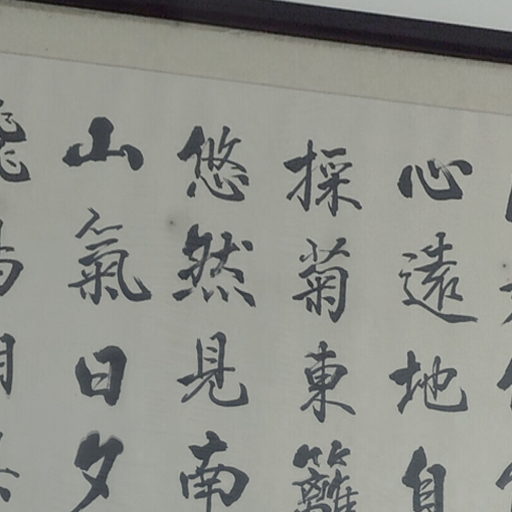 心遠地自
採菊東籬
悠然見南
山氣日夕
飛鳥相